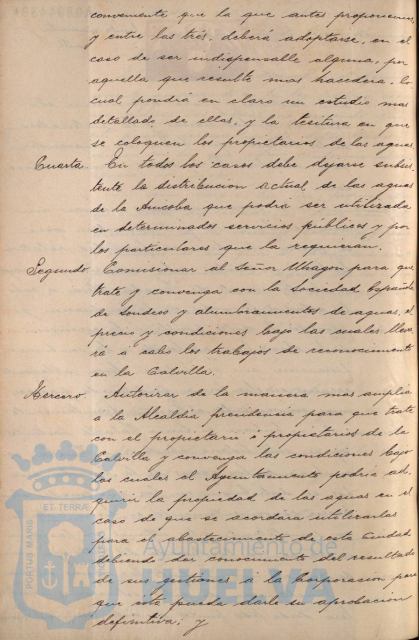 conveniente que la que antes proponemos,
y entre las tres, deberá adoptarse, en el
caso de ser indispensable alguna, por
aquella que resulte mas hacedera, lo
cual pondrá en claro un estudio mas
detallado de ellas, y la tesitura en que
se coloquen los propietarios de las aguas.
Cuarta. En todos los casos debe dejarse subsis
tente la distribucion actual, de las aguas
de la que podrá ser utilizada
en determinados servicios públicos y por
los particulares que la requieran.
Segundo. Comisionar al Señor Uhagon para que
trate y convenga con la Sociedad Española
de Sondeos y alumbramientos de aguas, el
precio y condiciones bajo las cuales lleva
rá a cabo los trabajos de reconocimiento
en la Calvilla.
Tercero. Autorizar de la manera mas amplia
á la Alcaldia presidencia para que trate
con el propietario ó propietarios de la
Calvilla y convenga las condiciones bajo
las cuales el Ayuntamiento podria ad
quirir la propiedad de las aguas en el
caso de que se acordara utilizarlas
para el abastecimiento de esta Ciudad,
debiendo dar conocimiento del resultado
de sus gestiones á la Corporacion para
que esta pueda darle su aprobacion
definitiva; y
PORTUS MARIS
ET TERRÆ
Ayuntamiento de
HUELVA